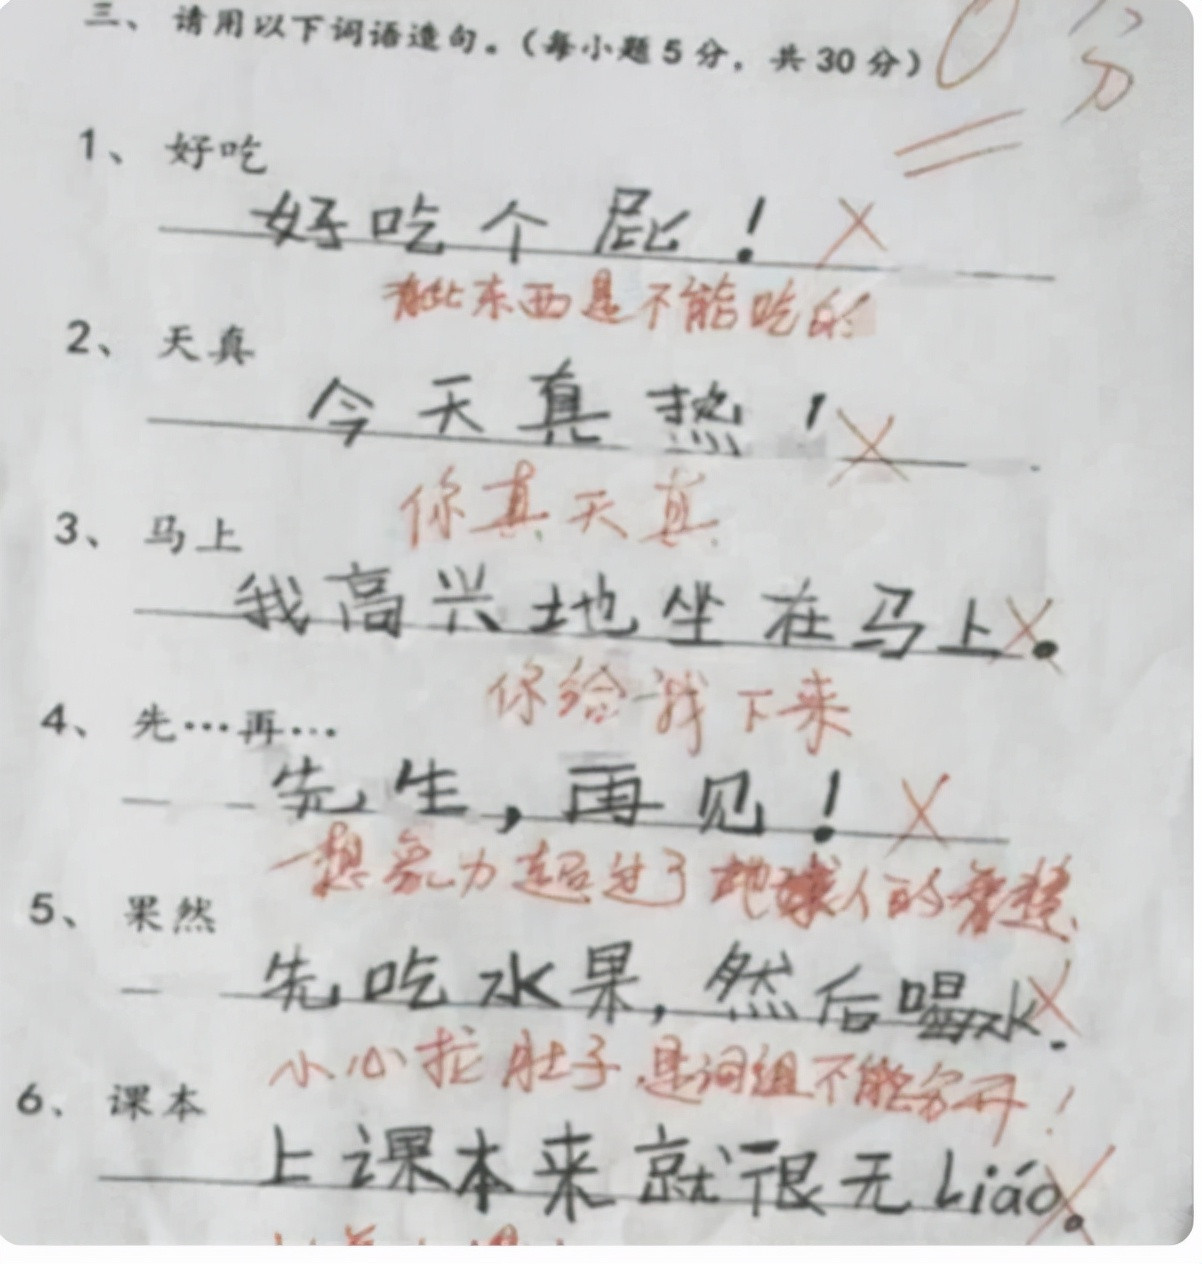 三、请用以下词语造句。(每小题5分,共30分)
0分
1、好吃
好吃个屁!
有些东西是不能吃的
2、天真
今天真热!
你真天真
3、马上
我高兴地坐在马上。
你给我下来
4、先…再…
先生,再见!
想象力超过了地球人的
5、果然
先吃水果,然后喝水.
小心拉肚子.是词组不能分开!
6、课本
上课本来就很无Liáo。